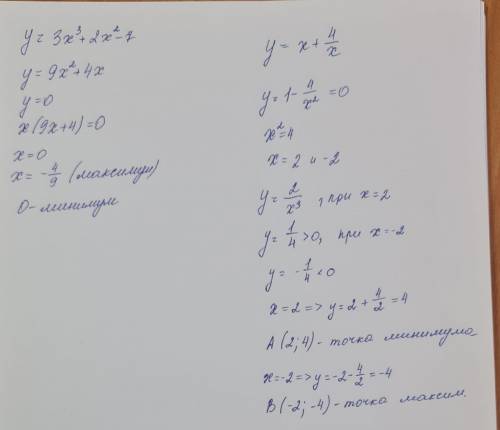 y = 3x³ + 2x² - 7
y = 9x² + 4x
y = 0
x(9x+4) = 0
x = 0
x = -4/9 (максимум)
0 - минимум
y = x + 4/x
y = 1 - 4/x² = 0
x² = 4
x = 2 и -2
y = 2/x³, при x = 2
y = 1/4 > 0, при x = -2
y = -1/4 < 0
x = 2 => y = 2 + 4/2 = 4
A (2; 4) - точка минимума
x = -2 => y = -2 - 4/2 = -4
B (-2; -4) - точка максим.